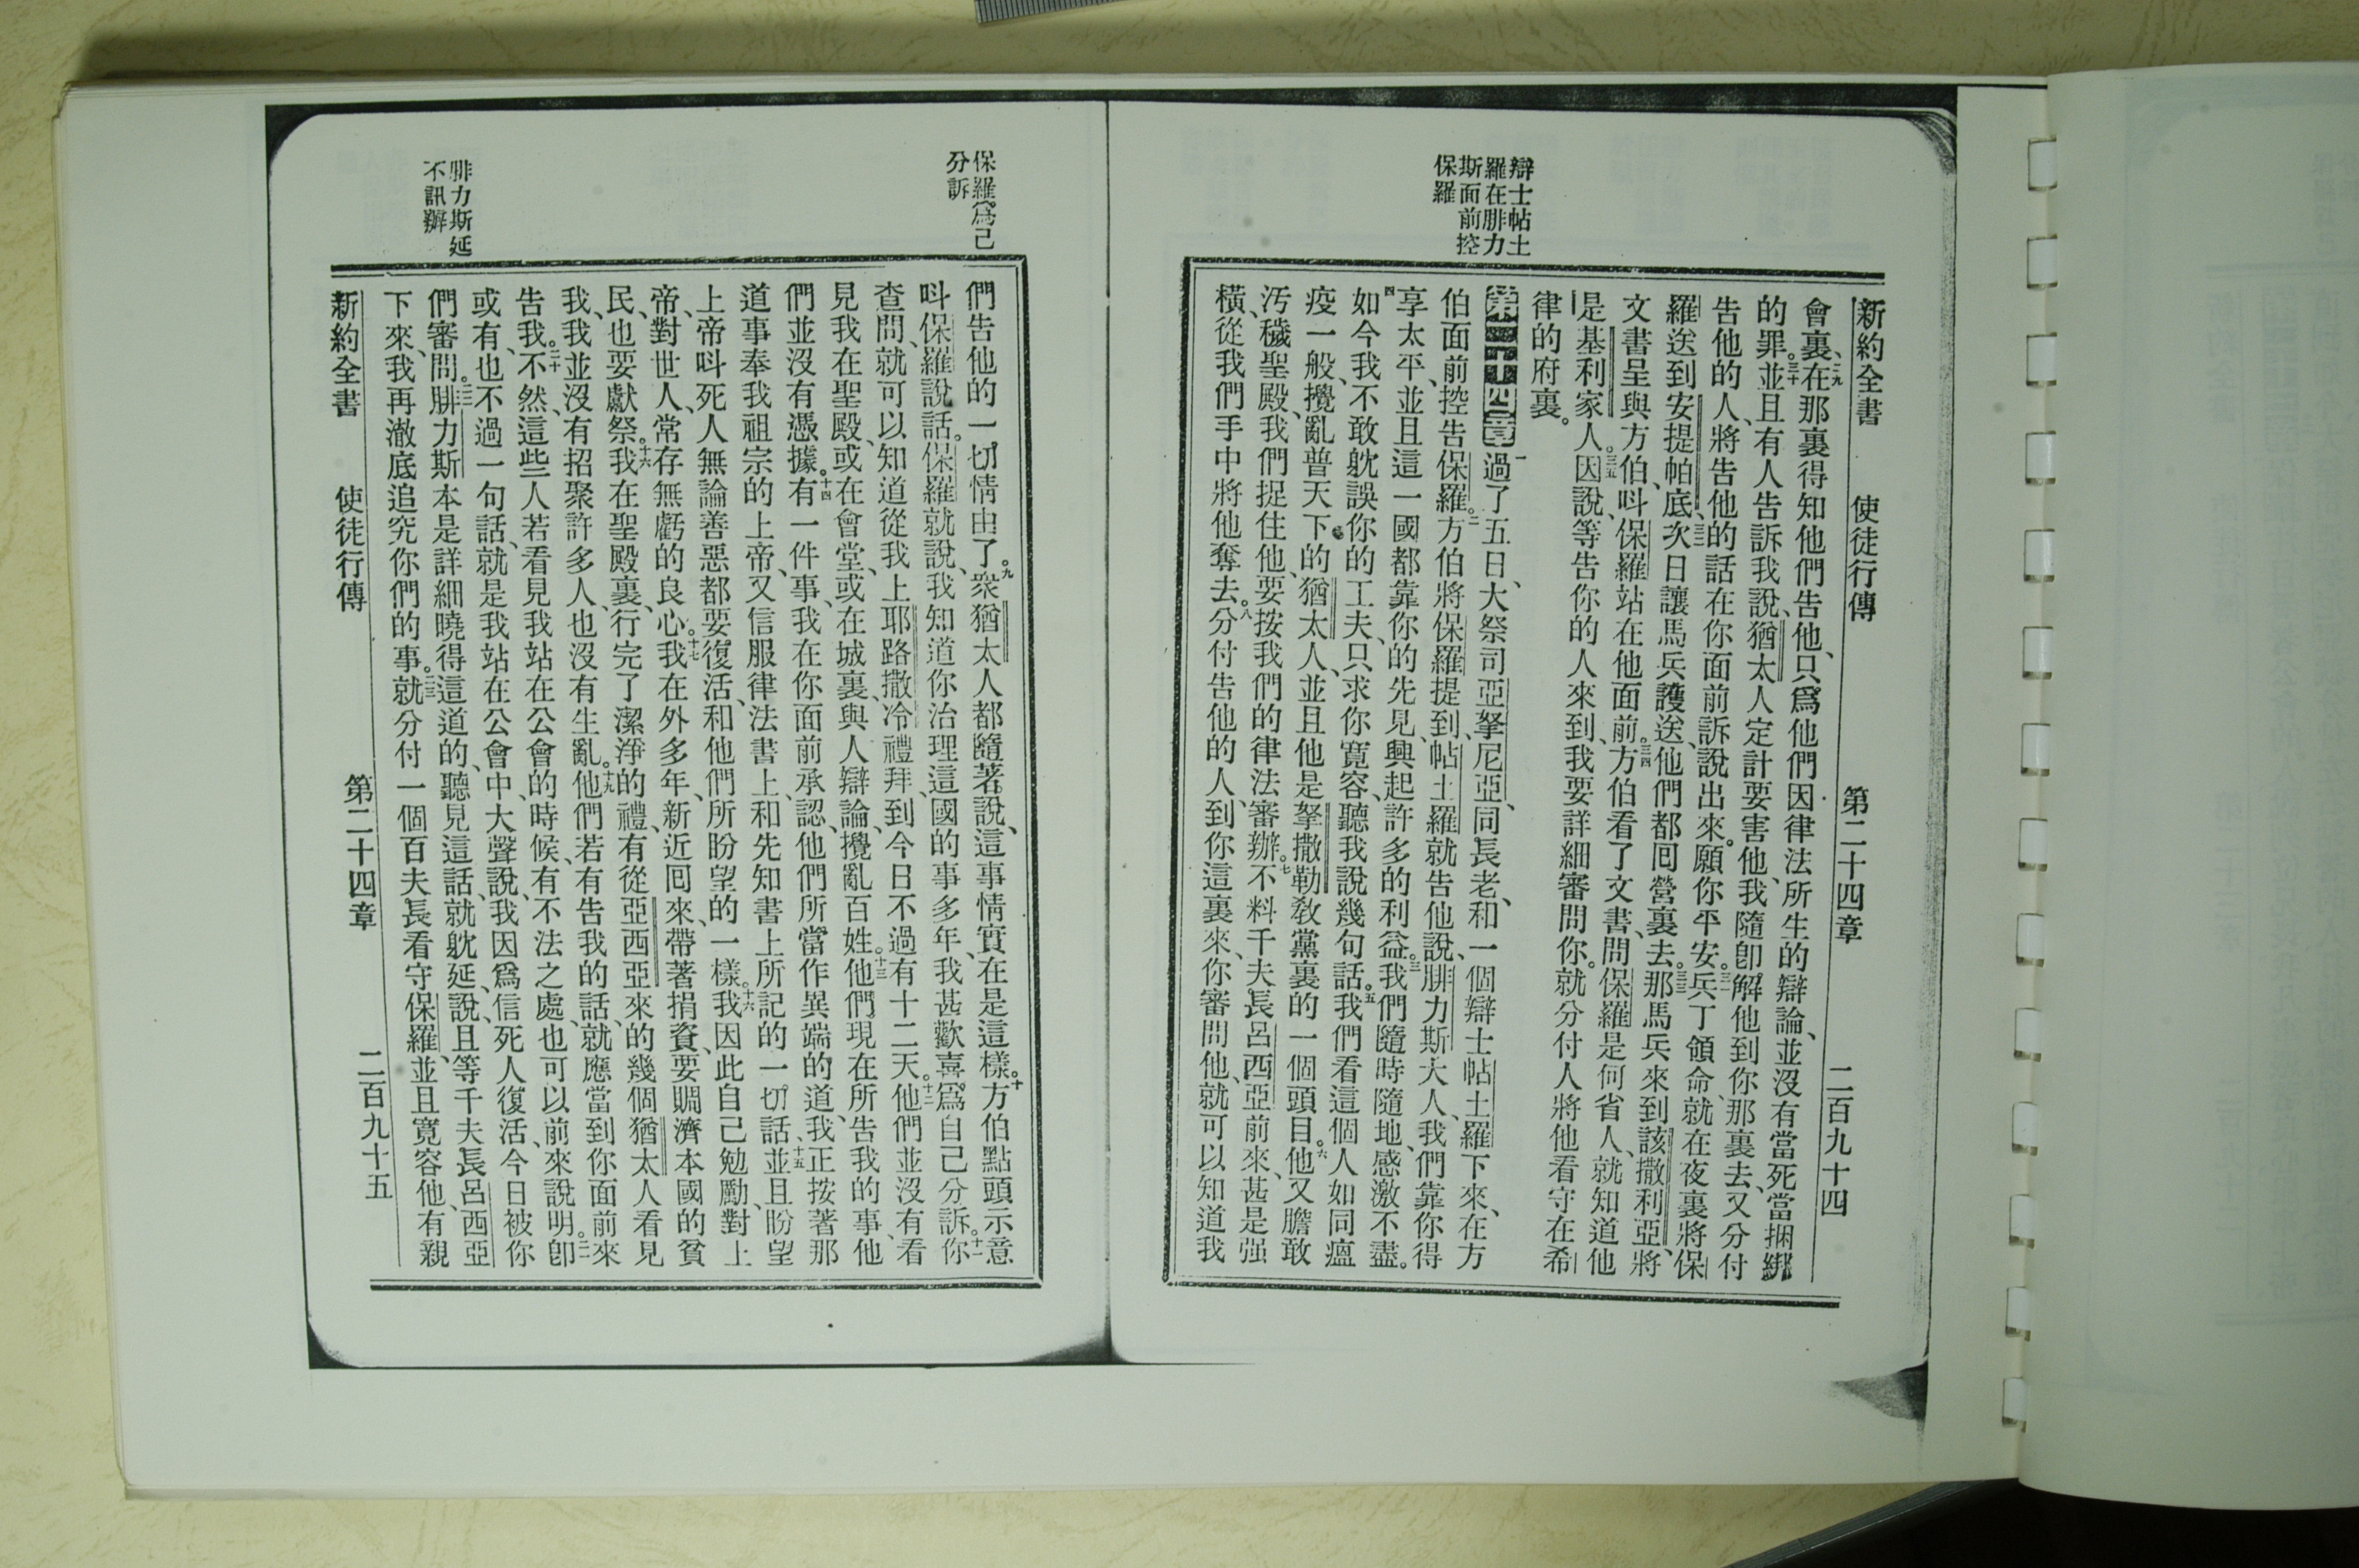 新約全書 使徒行傳 第二十四章 二百九十四
會裏、二九在那裏得知他們告他、只爲他們因律法所生的辯論、並沒有當死當捆綁
的罪。三十並且有人告訴我說、猶太人定計要害他、我隨卽解他到你那裏去、又分付
告他的人、將告他的話在你面前訴說出來。願你平安。三一兵丁領命、就在夜裏將保
羅送到安提帕底、三二次日讓馬兵護送、他們都囘營裏去。三三那馬兵來到該撒利亞、將
文書呈與方伯、呌保羅站在他面前。三四方伯看了文書、問保羅是何省人、就知道他
是基利家人。三五因說、等告你的人來到、我要詳細審問你。就分付人將他看守在希
律的府裏。
辯士帖土
羅在腓力
斯面前控
保羅
第二十四章 一過了五日、大祭司亞拏尼亞、同長老、和一個辯士帖土羅下來、在方
伯面前控告保羅。二方伯將保羅提到、帖土羅就告他說、腓力斯大人、我們靠你得
享太平、並且這一國都靠你的先見、興起許多的利益。三我們隨時隨地、感激不盡。
四如今我不敢躭誤你的工夫、只求你寬容、聽我說幾句話。五我們看這個人如同瘟
疫一般、攪亂普天下的猶太人、並且他是拏撒勒敎黨裏的一個頭目。六他又膽敢
汚穢聖殿、我們捉住他、要按我們的律法審辦。七不料千夫長呂西亞前來、甚是强
橫、從我們手中將他奪去。八分付告他的人、到你這裏來、你審問他、就可以知道我
保羅爲己
分訴
們告他的一切情由了。九衆猶太人都隨著說、這事情實在是這樣。十方伯點頭示意
呌保羅說話。保羅就說、我知道你治理這國的事多年、我甚歡喜、爲自己分訴。十一你
查問、就可以知道從我上耶路撒冷禮拜、到今日不過有十二天。十二他們並沒有看
見我在聖殿、或在會堂、或在城裏、與人辯論、攪亂百姓。十三他們現在所告我的事、他
們並沒有憑據。十四有一件事、我在你面前承認、他們所當作異端的道、我正按著那
道事奉我祖宗的上帝、又信服律法書上、和先知書上所記的一切話、十五並且盼望
上帝呌死人無論善惡都要復活、和他們所盼望的一樣。十六我因此自己勉勵、對上
帝、對世人、常存無虧的良心。十七我在外多年、新近囘來、帶著捐資、要賙濟本國的貧
民、也要獻祭。十六我在聖殿裏、行完了潔淨的禮、有從亞西亞來的幾個猶太人看見
我、我並沒有招聚許多人、也沒有生亂。十九他們若有告我的話、就應當到你面前來
告我。二十不然、這些人若看見我站在公會的時候、有不法之處、也可以前來說明。二一卽
或有、也不過一句話、就是我站在公會中、大聲說、我因爲信死人復活、今日被你
們審問。二二腓力斯本是詳細曉得這道的、聽見這話、就躭延、說、且等千夫長呂西亞
腓力斯延
不訊辦
下來、我再澈底追究你們的事。二三就分付一個百夫長看守保羅、並且寬容他、有親
新約全書 使徒行傳 第二十四章 二百九十五